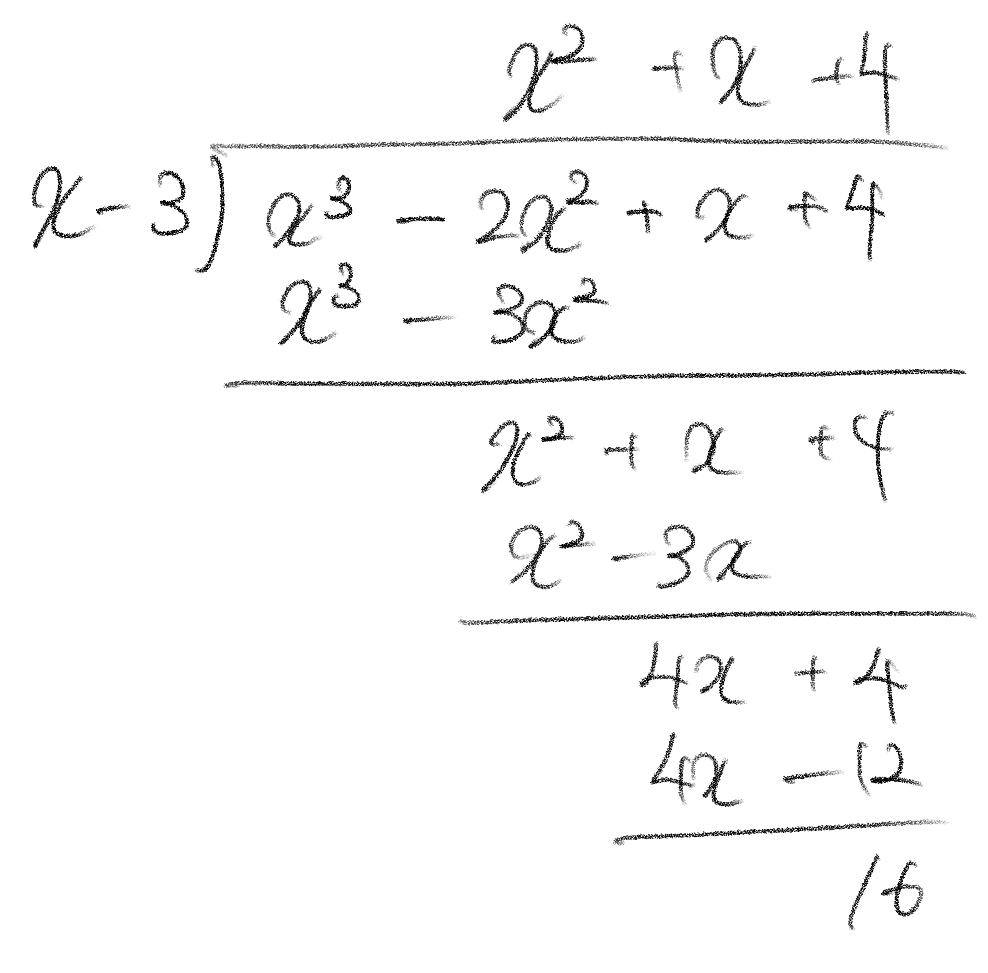 x² + x + 4
x - 3) x³ - 2x² + x + 4
x³ - 3x²
x² + x + 4
x² - 3x
4x + 4
4x - 12
16